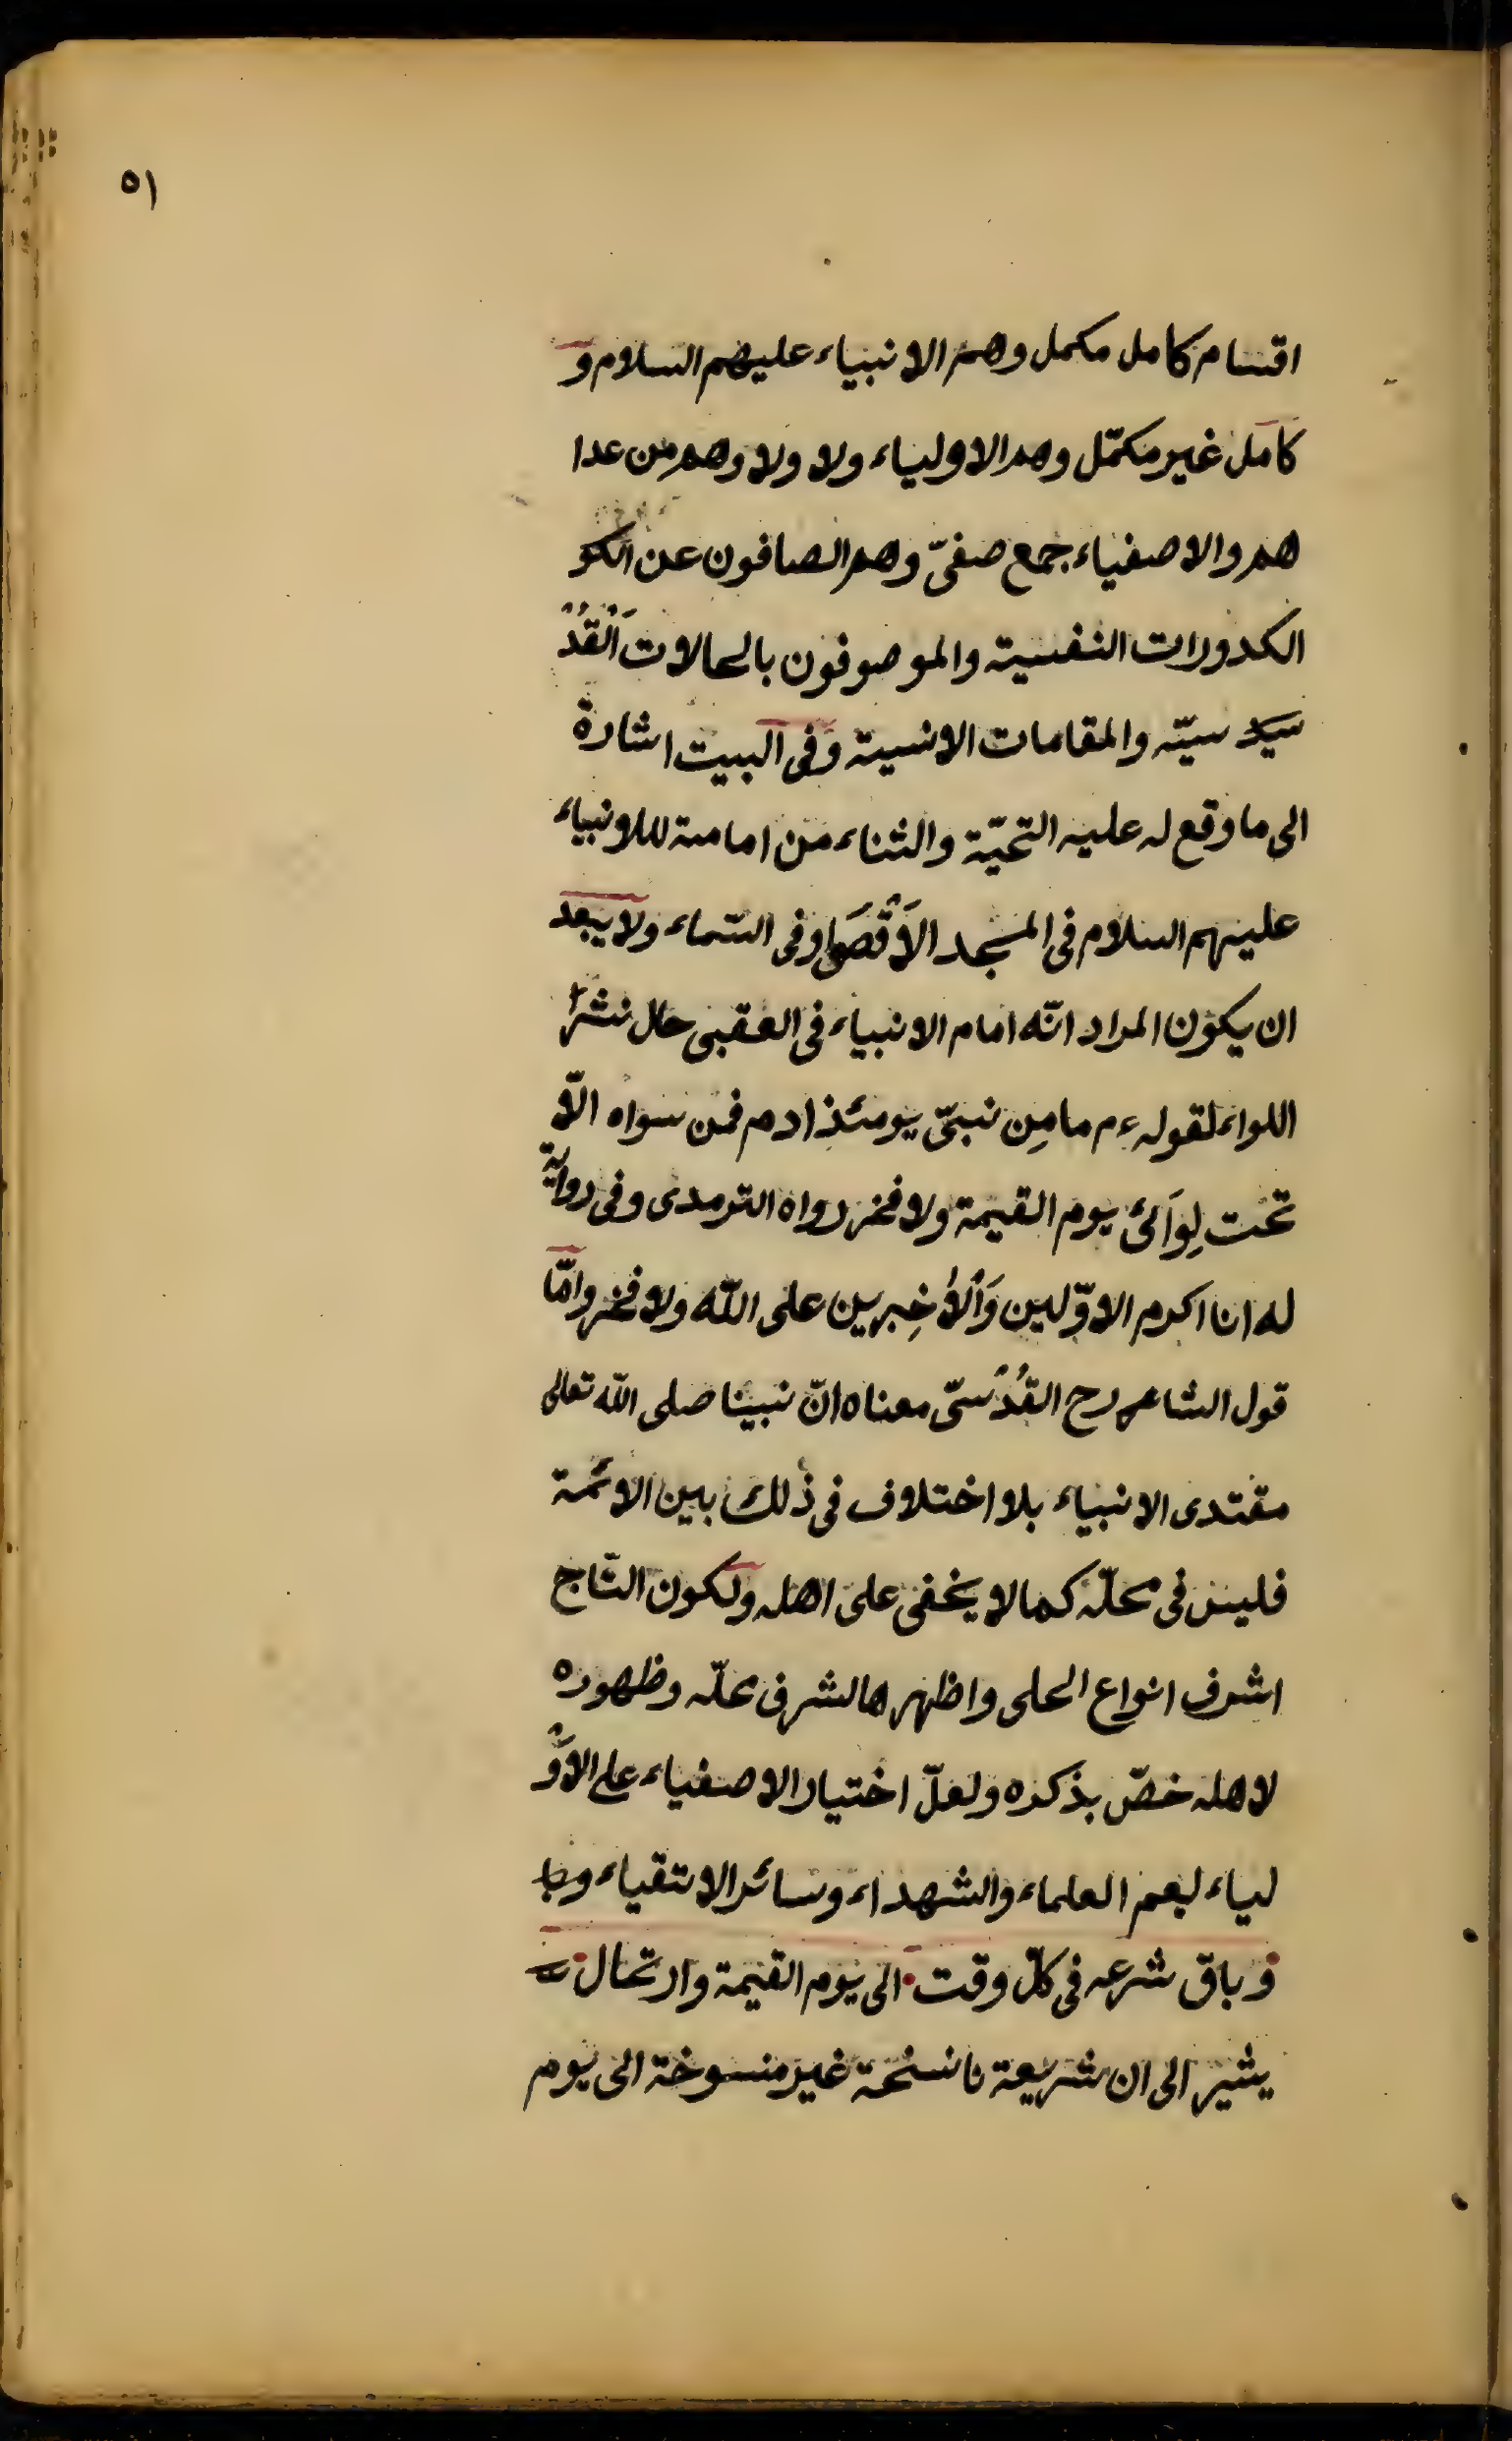 ٥١
اقسام كامل مكمل وهم الانبياء عليهم السلام و
كامل غير مكمّل وهم الاولياء ولا ولا وهم من عدا
هم والاصفياء جمع صفىّ وهم الصافون عن الكو
الكدورات النفسية والموصوفون بالحالات اَلْقُدْ
سيّه والمقامات الانسية وفى البيت اشارة
الى ما وقع له عليه التحيّة والثناء من امامة للانبياء
عليهم السلام فى المسجد الاَقْصَى او فى السّماء ولا يبعد
ان يكون المراد انّه امام الانبياء فى العقبى حال نشر
اللواء لقوله ءم ما مِن نبىّ يومئذ ادم فمن سواه الّا
تحت لِوَائى يوم القيمة ولا فخر رواه الترمدى وفى رواية
له انا اكرم الاوّلين وَالْاٰخِرين على اللّه ولا فخر وامّا
قول الشاعر رح القُدْسىّ معناه انّ نبينا صلى اللّه تعالى
مقتدى الانبياء بلا اختلاف فى ذلك بين الائمة
فليس فى محلّه كما لا يخفى على اهله ولكون التّاج
اشرف انواع الحلى واظهرها لشرف محلّه وظهوره
لاهله خصّ بذكره ولعلّ اختيار الاصفياء على الاَوْ
لياء ليعم العلماء والشهداء وسائر الاتقياء
و باق شرعه فى كلّ وقت الى يوم القيمة وارتحال
يشير الى ان شريعة ناسخة غير منسوخة الى يوم